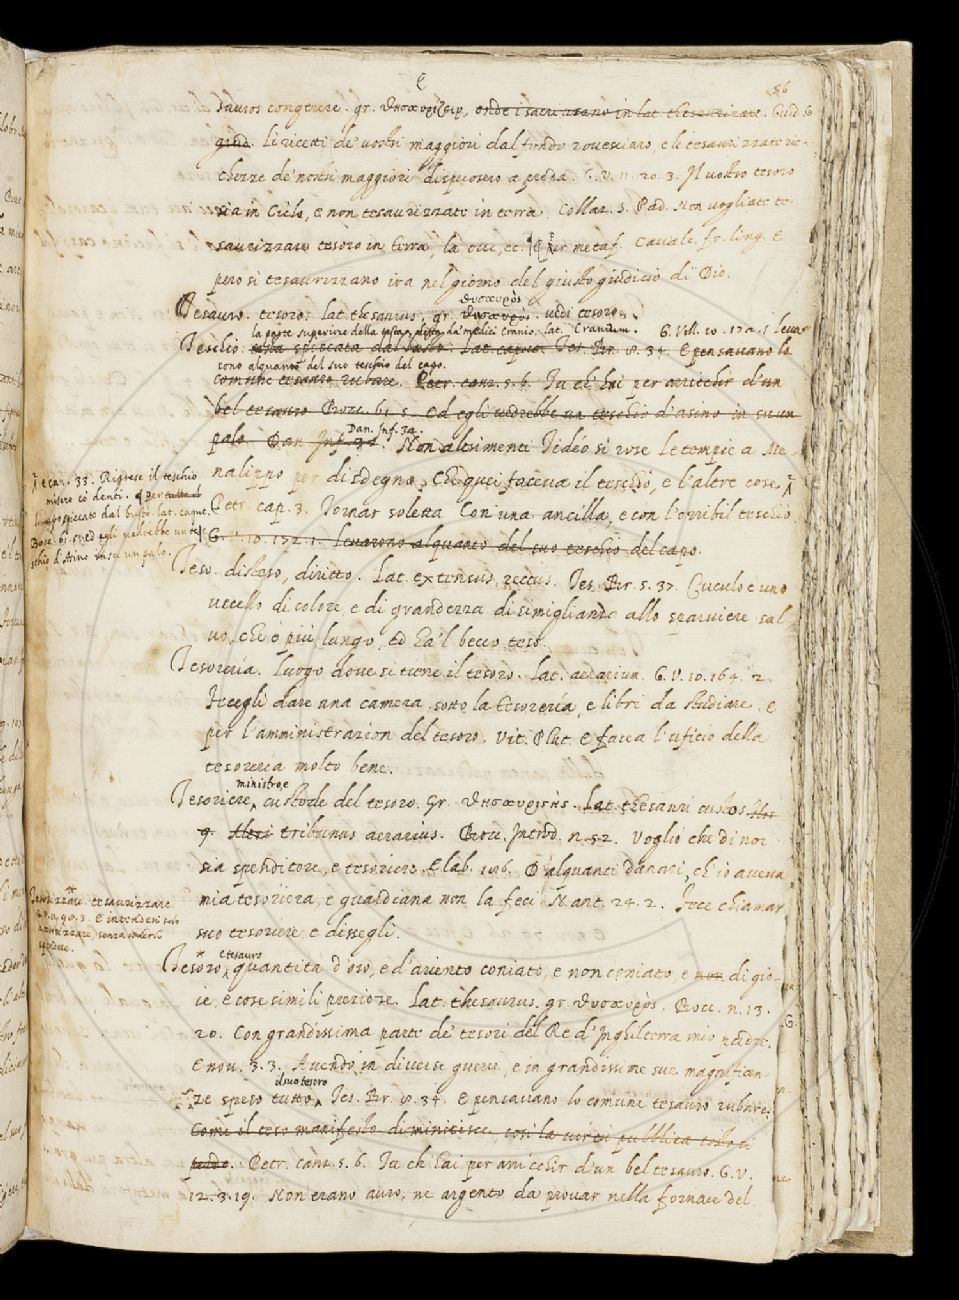 e
56
sauros congerere. gr. θησαυρίζειν, onde i sacri usano in lat. thesaurizare. Guid. G
giud. Li ricchi de' vostri maggiori dal fondo rovesciaro, e le tesaurizzate ric-
chezze de' nostri maggiori dispuosero a preda. G. V. 11. 20. 3. Il vostro tesoro
sia in Cielo, e non tesaurizzate in terra. Collaz. S. Pad. Non vogliate te-
saurizzare tesoro in terra, là ove, ec. ¶ Per metaf. Cavalc. fr. ling. E
però si tesaurizzano ira nel giorno del giusto giudicio di Dio.
θησαυρὸς
Tesauro. tesoro. lat. thesaurus, gr. θησαυρὸς. vedi tesoro.
la parte superiore della testa, detta da' medici cranio. lat. Cranium. G. Vill. 10. 172. 1 Levar
Teschio. testa spiccata dal busto. Lat. caput. Tes. Br. 8. 34. E pensavano lo
rono alquanto del suo teschio del capo.
comune tesauro rubare. Petr. canz. 5. 6. Tu ch' hai per arricchir d'un
bel tesauro Bocc. 61. 5. Ed egli vedrebbe un teschio d'asino in su un
Dan. Inf. 32.
palo. Dan. Inf. 32. Non altrimenti Tideo si rose Le tempie a Me-
nalippo per disdegno, Che quei faceva il teschio, e l'altre cose
Petr. cap. 3. Tornar soletta Con una ancilla, e con l'orribil teschio
G. V. 10. 172. 1. Levarono alquanto del suo teschio del capo.
e can. 33. Riprese il teschio
misero co' denti. ¶ per tutto il
capo spiccato dal busto lat. caput.
Bocc. 61. 5. Ed egli vedrebbe un te
schio d'Asino in su un palo.
Teso. disteso, diritto. Lat. extensus, rectus. Tes. Br. 5. 37. Cuculo è uno
uccello di colore e di grandezza di simigliante allo sparviere sal
vo, che è più lungo, ed ha 'l becco teso.
Tesoreria. Luogo dove si tiene il tesoro. Lat. aerarium. G. V. 10. 164. 2.
Fecegli dare una camera sotto la tesoreria, e libri da studiare. E
per l'amministrazion del tesoro. Vit. Plut. E faceva l'uficio della
tesoreria molto bene.
ministro, e
Tesoriere, custode del tesoro. Gr. θησαυριστής. Lat. thesauri custos
tribunus aerarius. Bocc. Introd. n. 52. Voglio che di noi
sia spenditore, e tesoriere. E lab. 196. D'alquanti danari, ch' io aveva
mia tesoriera, e guardiana non la feci. N. ant. 24. 2. Fece chiamar
suo tesoriere e dissegli.
Tesorizzare. tesaurizzare
e intendersi
Tesoro, quantità d'oro, e d'ariento coniato, e non coniato, e non di gio-
e tesauro
ie, e cose simili preziose. Lat. thesaurus, gr. θησαυρὸς. Bocc. n. 13.
20. Con grandissima parte de' tesori del Re d'Inghilterra mio padre.
E nov. 3. 3. Avendo in diverse guerre, e in grandissime sue magnificen-
il suo tesoro
ze speso tutto. Tes. Br. 8. 34. E pensavano lo comune tesauro rubare.
Come il teso manifesto diminiisce, così la virtù pubblica
perde. Petr. canz. 5. 6. Tu ch' hai per arricchir d'un bel tesauro. G. V.
12. 3. 19. Non erano auro, ne argento da provar nella fornace del